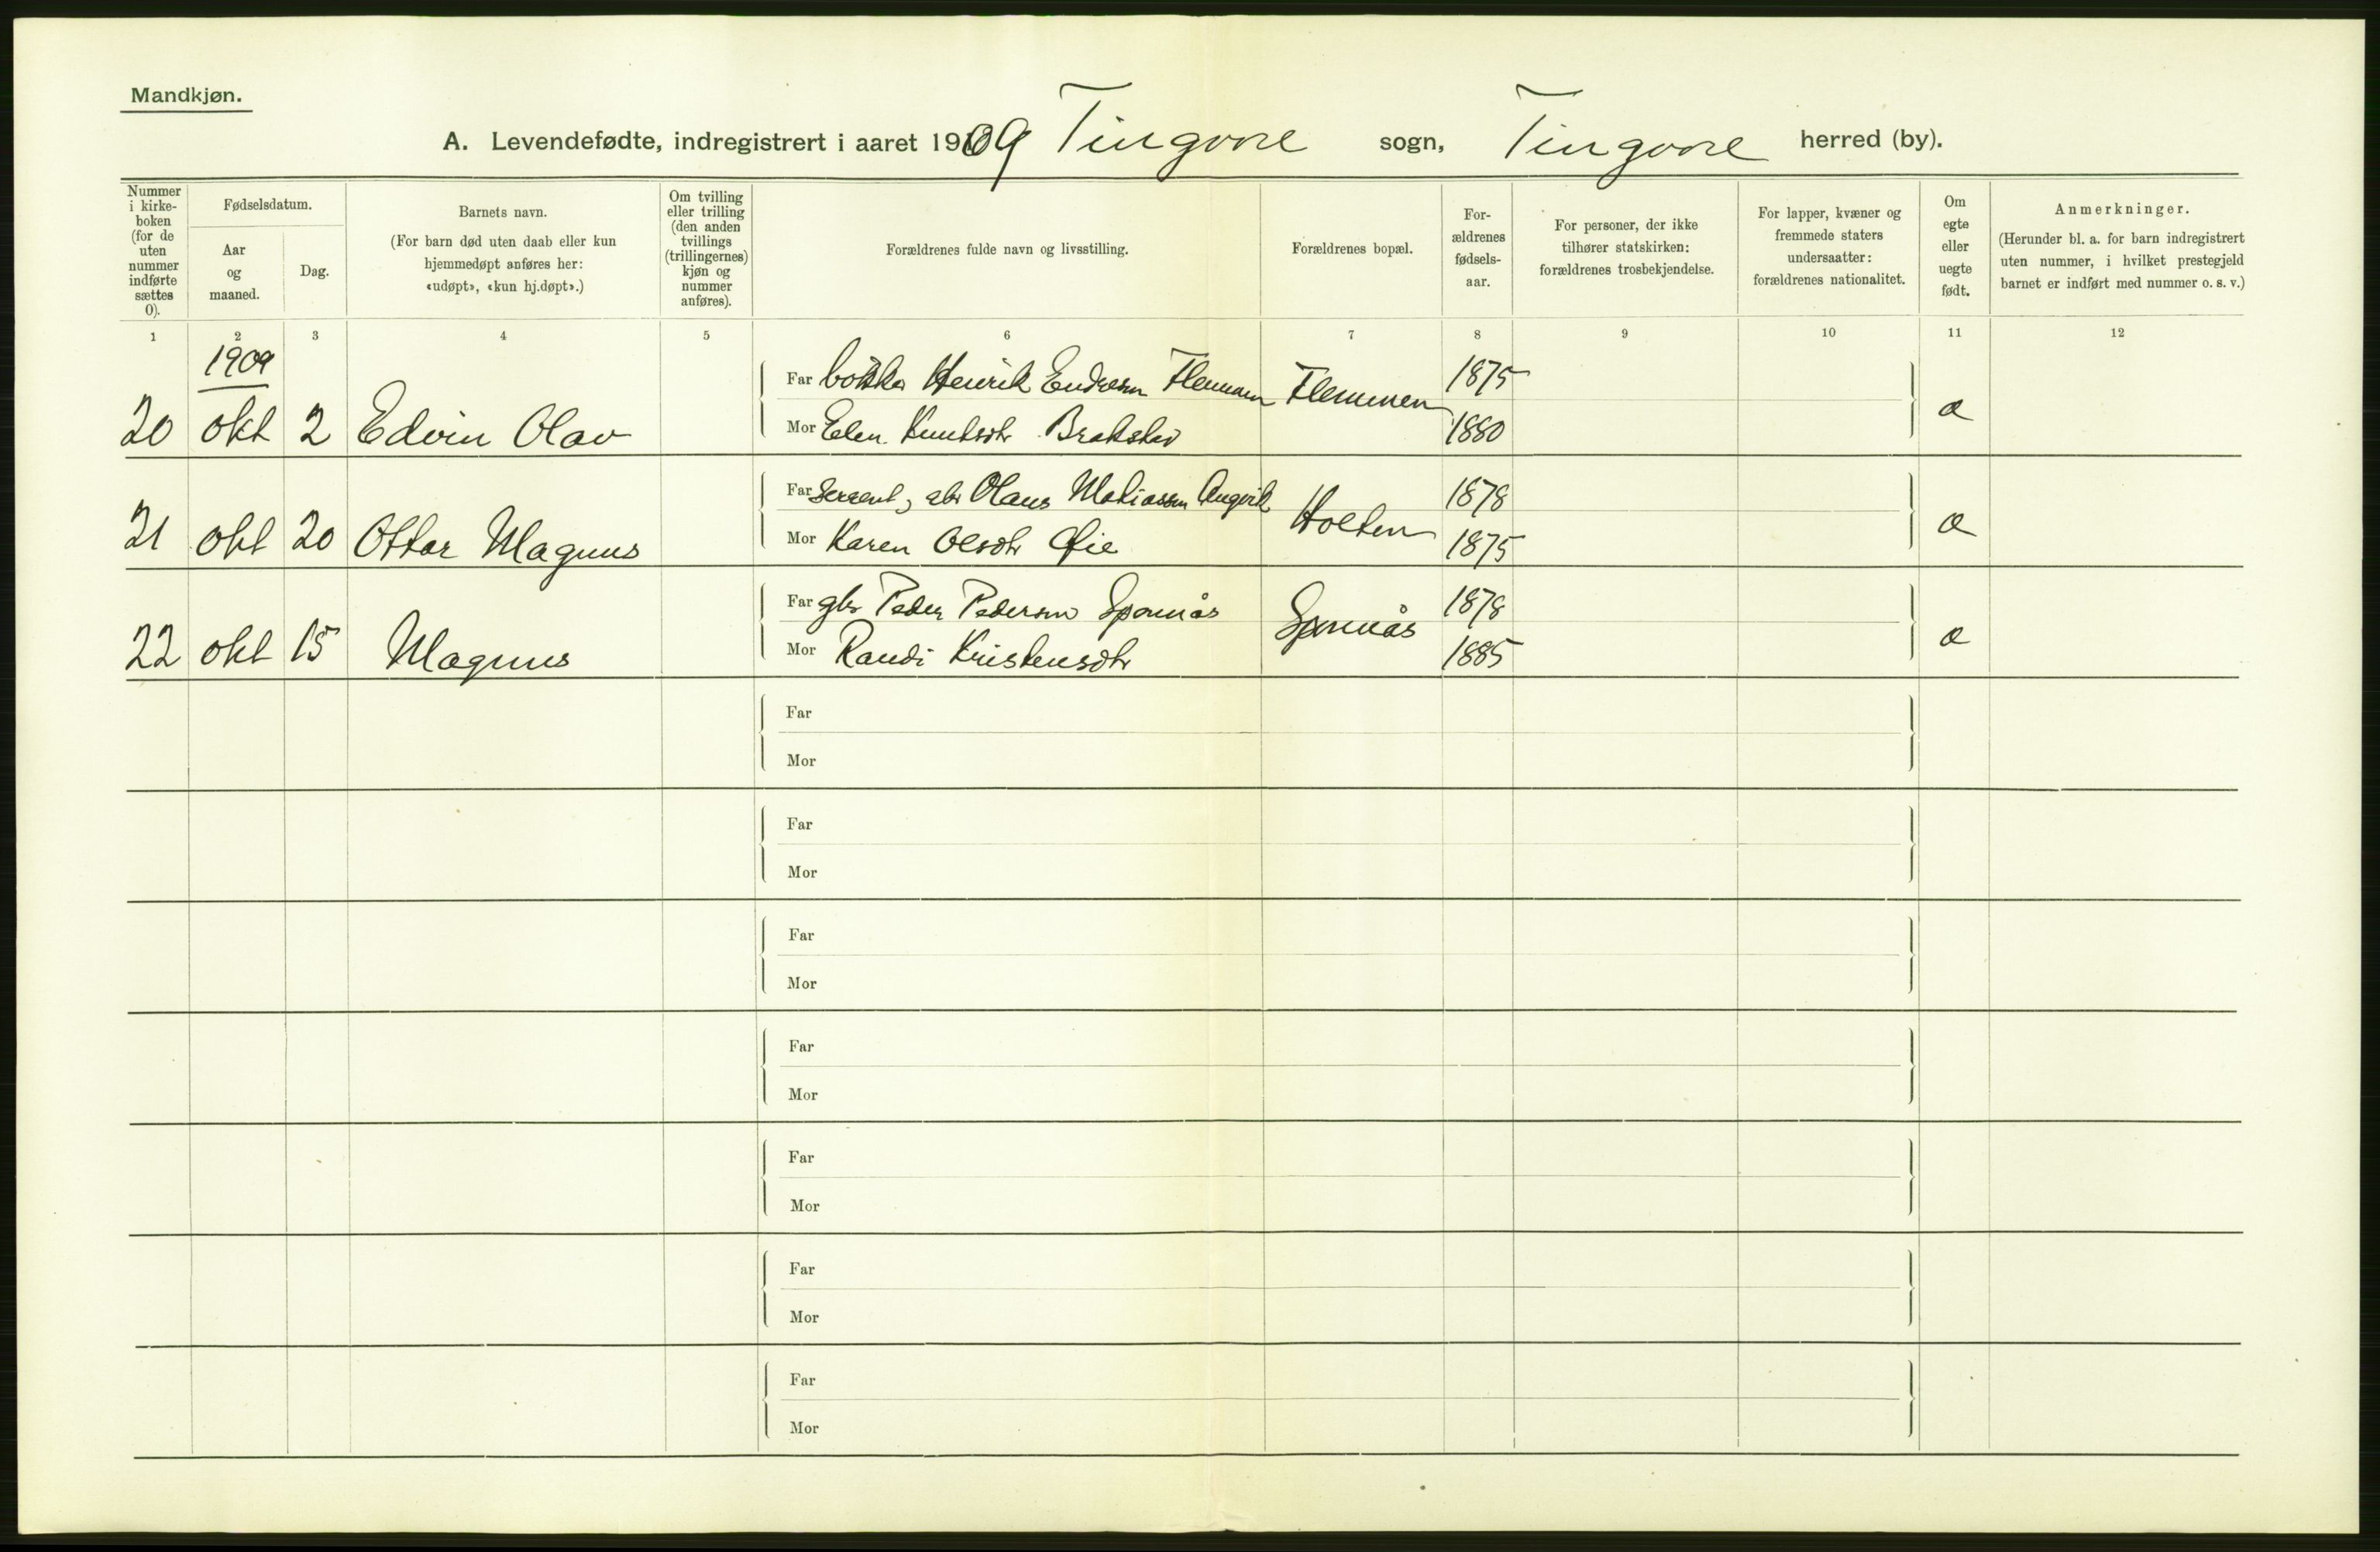 Mandkjøn.
A. Levendefødte, indregistrert i aaret 1909 Tingvoll sogn, Tingvoll herred (by).
Nummer i kirke-boken (for de uten nummer indførte sættes 0).
Fødselsdatum.
Aar og maaned.
Dag.
Barnets navn.
(For barn død uten daab eller kun hjemmedøpt anføres her: «udøpt», «kun hj.døpt».)
Om tvilling eller trilling (den anden tvillings (trillingernes) kjøn og nummer anføres).
Forældrenes fulde navn og livsstilling.
Forældrenes bopæl.
For-ældrenes fødsels-aar.
For personer, der ikke tilhører statskirken: forældrenes trosbekjendelse.
For lapper, kvæner og fremmede staters undersaatter: forældrenes nationalitet.
Om egte eller uegte født.
Anmerkninger.
(Herunder bl. a. for barn indregistrert uten nummer, i hvilket prestegjeld barnet er indført med nummer o. s. v.)
1 2 3 4 5 6 7 8 9 10 11 12
1909
Far Henrik Endresen Flemmen Flemmen 1875
20 okt 2 Edvin Olav
Mor Elen Knutsdtr Brakstad 1880
Far Sergent, Olaus Matiassen Angvik Holten 1878
21 okt 20 Ottar Magnus
Mor Karen Olsdtr Øie 1875
Far gbr Peder Pedersen Spernås Spernås 1878
22 okt 15 Magnus
Mor Randi Kristensdtr 1885
Far
Mor
Far
Mor
Far
Mor
Far
Mor
Far
Mor
Far
Mor
Far
Mor